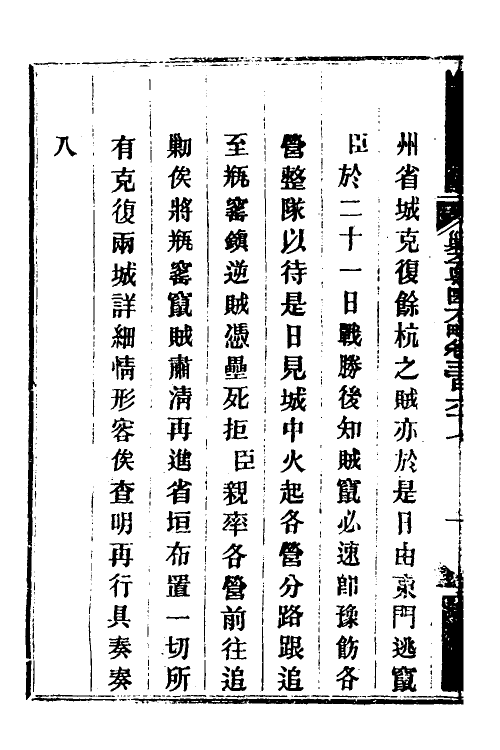 州省城克復餘杭之賊亦於是日由東門逃竄
臣於二十一日戰勝後知賊竄必速卽豫飭各
營整隊以待是日見城中火起各營分路跟追
至瓶窰鎮逆賊憑壘死拒臣親率各營前往追
勦俟將瓶窰竄賊肅清再進省垣布置一切所
有克復兩城詳細情形容俟查明再行具奏奏
入